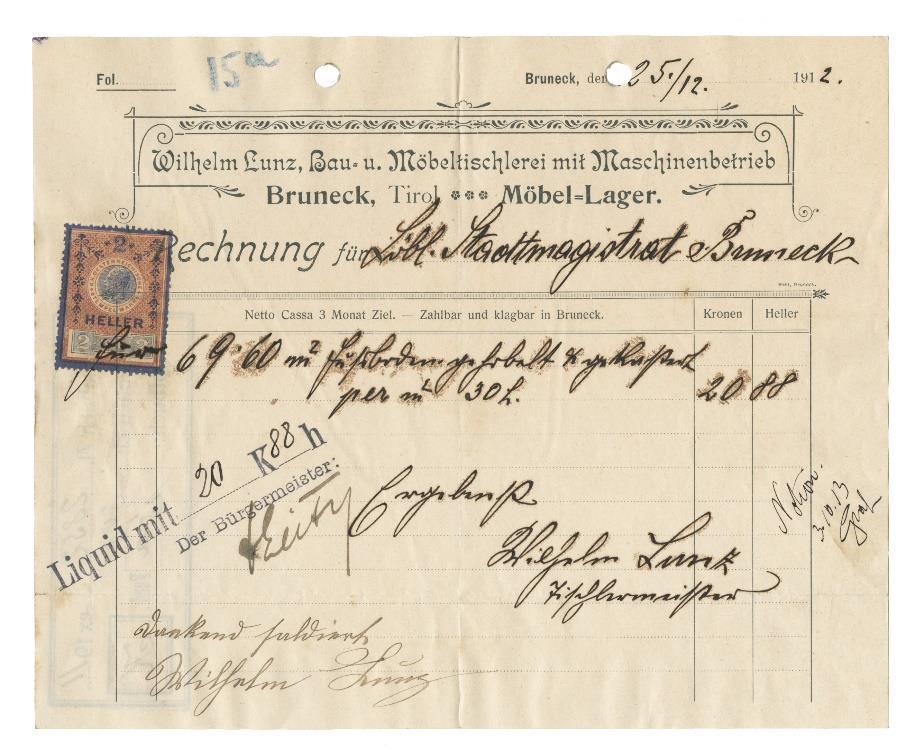 Fol. 15a Bruneck, den 25./12. 1912.
Wilhelm Lunz, Bau- u. Möbeltischlerei mit Maschinenbetrieb
Bruneck, Tirol Möbel-Lager.
Rechnung für Löbl. Stadtmagistrat Bruneck
2
HELLER
2
Netto Cassa 3 Monat Ziel. — Zahlbar und klagbar in Bruneck. Kronen Heller
für 69 60 m² Fussboden gehobelt &
per m² 30 h. 20 88
Liquid mit 20 K 88 h
Der Bürgermeister:
Ergebenst
Wilhelm Lunz
Tischlermeister
3.10.13
Dankend saldiert
Wilhelm Lunz